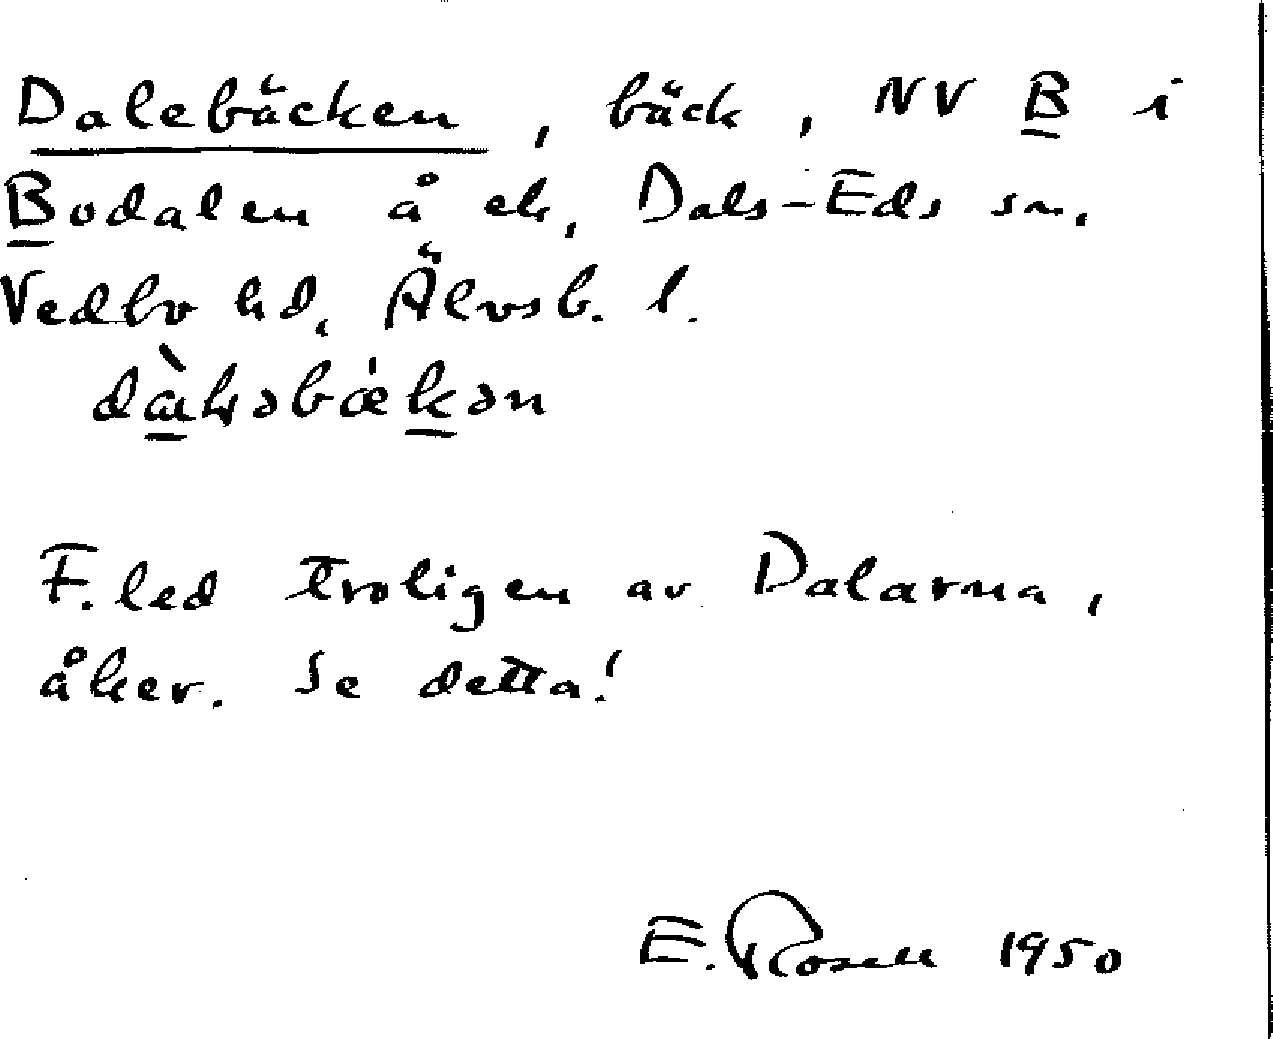 Dalebäcken, bäck, NV B i
Bodalen å ek, Dals-Eds sn.
Vedbo hd, Älvsb. l.
F.led troligen av Dalarna,
åker. Se detta!
E. Rosell 1950